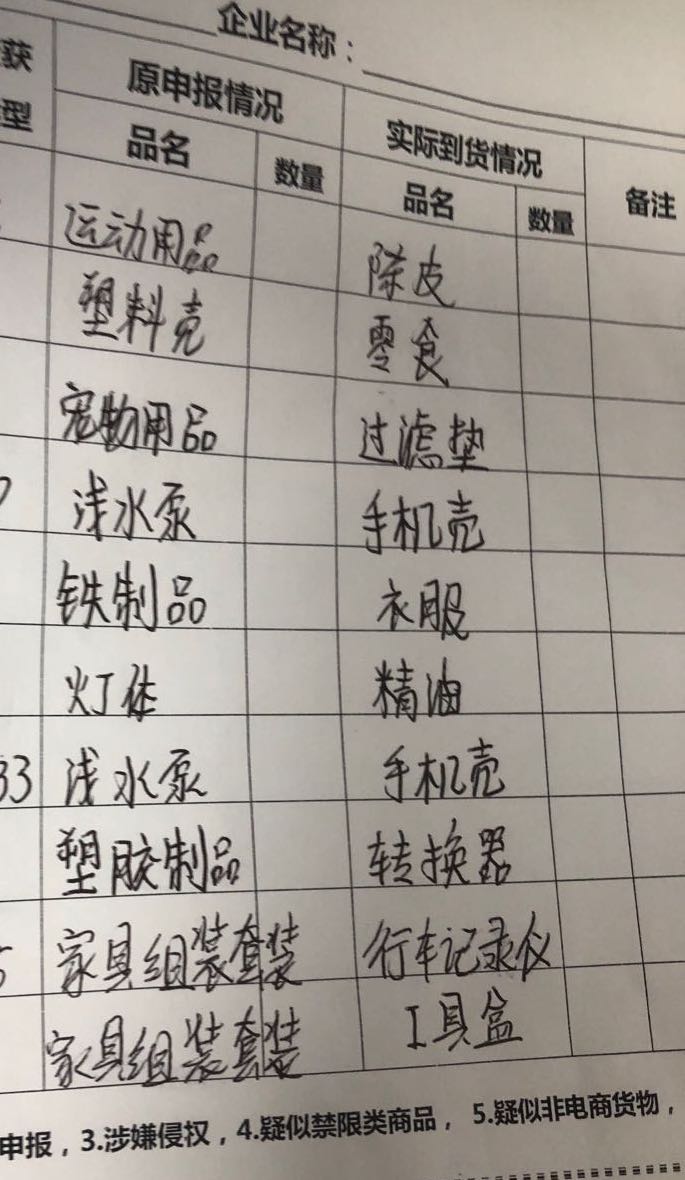 企业名称：
获 原申报情况 实际到货情况 备注
型 品名 数量 品名 数量
运动用品 陈皮
塑料壳 零食
宠物用品 过滤垫
浅水泵 手机壳
铁制品 衣服
灯体 精油
33 浅水泵 手机壳
塑胶制品 转换器
家具组装套装 行车记录仪
家具组装套装 工具盒
申报，3.涉嫌侵权，4.疑似禁限类商品，5.疑似非电商货物，